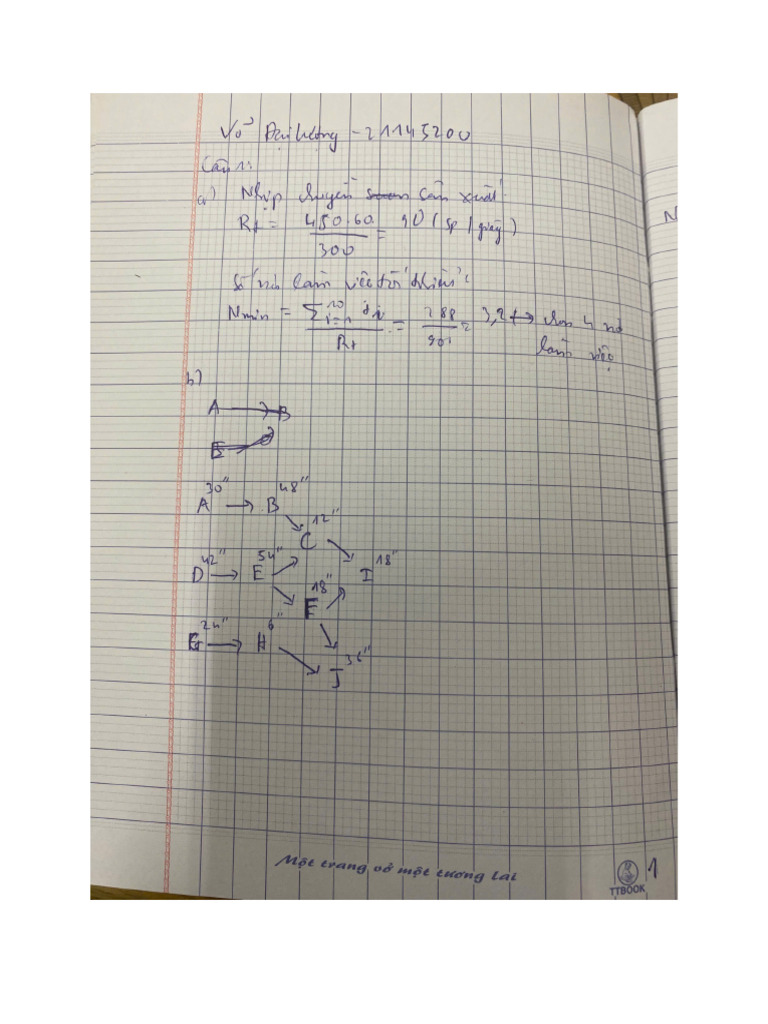 Võ Đại Lượng - 21145200
Câu 1:
a) Nhịp chuyền sản xuất
Rt = 450.60 / 300 = 90 (sp / giây)
Số nơi làm việc tối thiểu:
Nmin = Σ i=1 10 ti / Rt = 288 / 90 = 3,2 → chọn 4 nơi
làm việc
b)
A → B
E
30" 48"
A → B
12"
C
42" 54" 18"
D → E I
18"
F
24" 6"
G → H
36"
J
Một trang vở một tương lai
TTBOOK
1
N